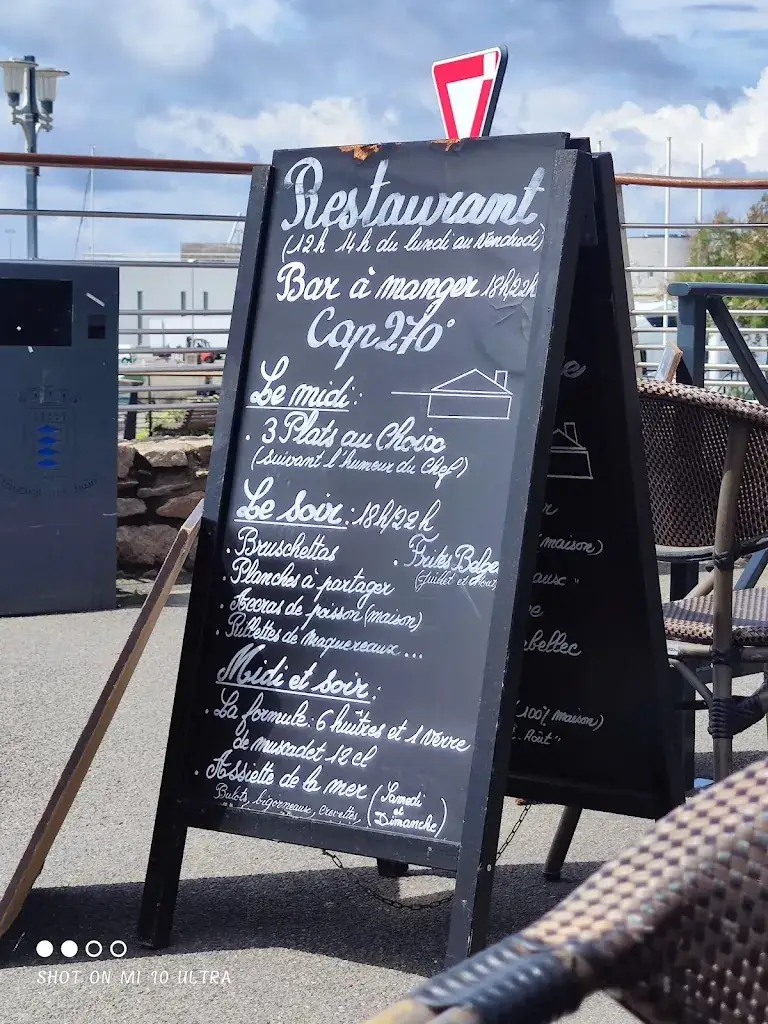 Restaurant
(12h 14h du lundi au Vendredi)
Bar à manger 18h/22h
Cap 270°
Le midi:
. 3 Plats au Choix
(suivant l'humeur du Chef)
Le Soir: 18h/22h
. Bruschettas
. Frites Belge
. Planches à partager
. Accras de poisson (maison)
. Rillettes de maquereaux...
Midi et soir:
. La formule: 6 huîtres et 1 verre
de muscadet 12 cl
. Assiette de la mer (Samedi
et
Dimanche)
Bulots, bigorneaux, crevettes,
maison)
(100% maison)
SHOT ON MI 10 ULTRA